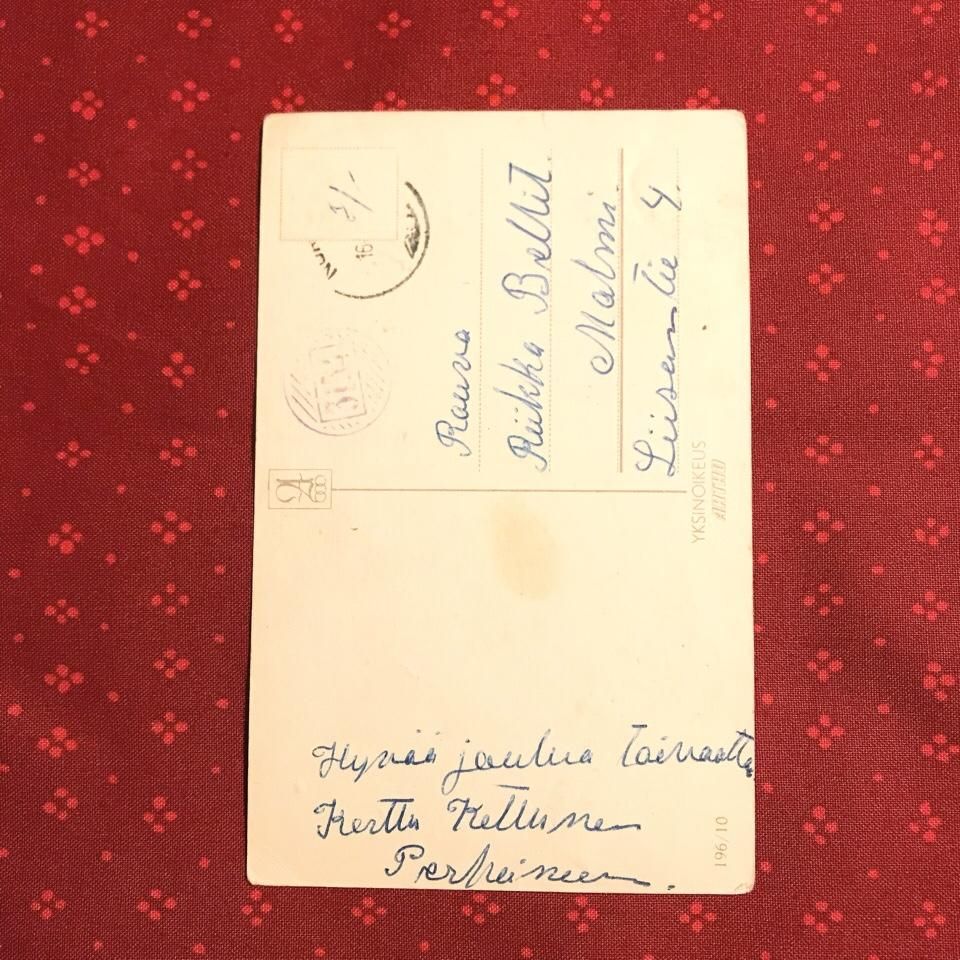 7/-
16
3174
Rouva
Riikka Bellit.
Malmi.
Liisantie 4.
YKSINOIKEUS
196/10
Hyvää joulua toivottaa
Kerttu Kettunen
Perheineen.